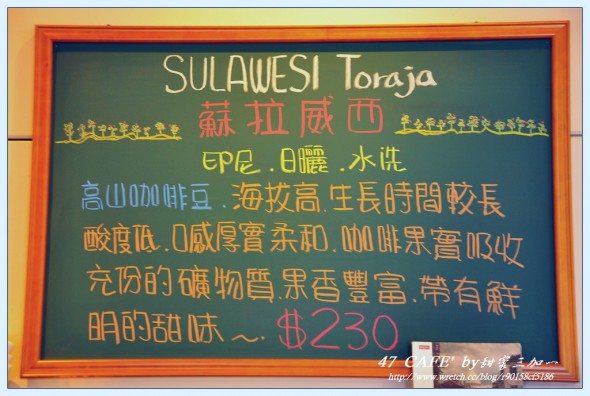 SULAWESI Toraja
蘇拉威西
印尼.日曬.水洗
高山咖啡豆.海拔高.生長時間較長
酸度低.口感厚實柔和.咖啡果實吸收
充份的礦物質.果香豐富.帶有鮮
明的甜味～.$230
47 CAFE' by甜蜜三加一
http://www.wretch.cc/blog/r90158cf5186